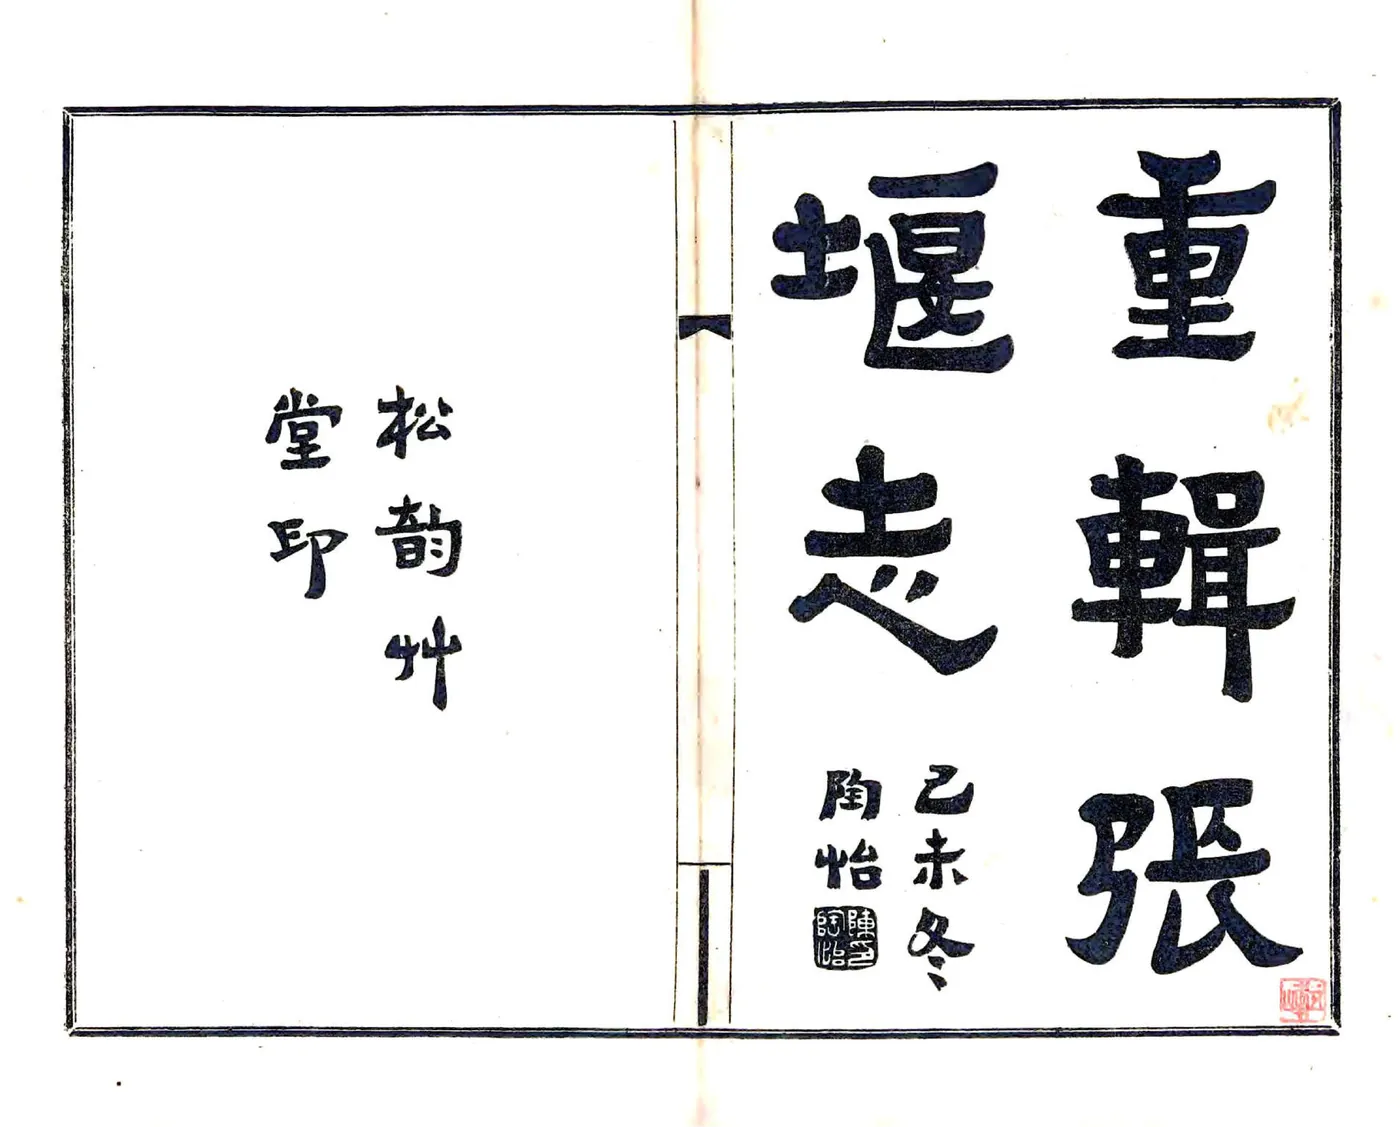 重輯張
堰志
己未冬
陶怡
陳印陶怡
松韵艸
堂印